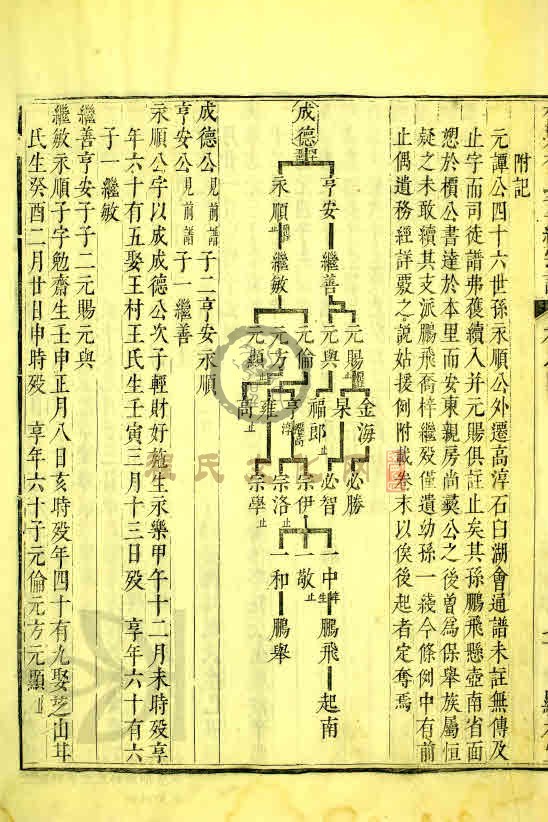 附記
元譚公四十六世孫永順公外遷高淳石臼湖會通譜未註無傳及
止字而司徒譜弗獲續入并元賜俱註止矣其孫鵬飛懸壺南省面
愬於檟公書達於本里而安東親房尚蓂公之後曾為保舉族屬恒
疑之未敢續其支派鵬飛喬梓繼歿僅遺幼孫一綫今條例中有前
止偶遺務經詳覈之說姑援例附載卷末以俟後起者定奪焉
成德
亨安 永順
繼善 繼敏
元賜 元興 元倫 元方 元顯止
金海 杲 福郎止 亨 雍 高止
必勝 必智 宗伊 宗洛止 宗學止
一中 一敬止 一和
鵬飛 鵬舉
起南
成德公見前譜 子二亨安永順
亨安公見前譜 子一繼善
永順公字以成成德公次子輕財好施生永樂甲午十二月未時歿享
年六十有五娶王村王氏生壬寅三月十三日歿 享年六十有六
子一繼敏
繼善亨安子子二元賜元興
繼敏永順子字勉齋生壬申正月八日亥時歿年四十有九娶芝山
氏生癸酉二月廿日申時歿 享年六十子元倫元方元顯止